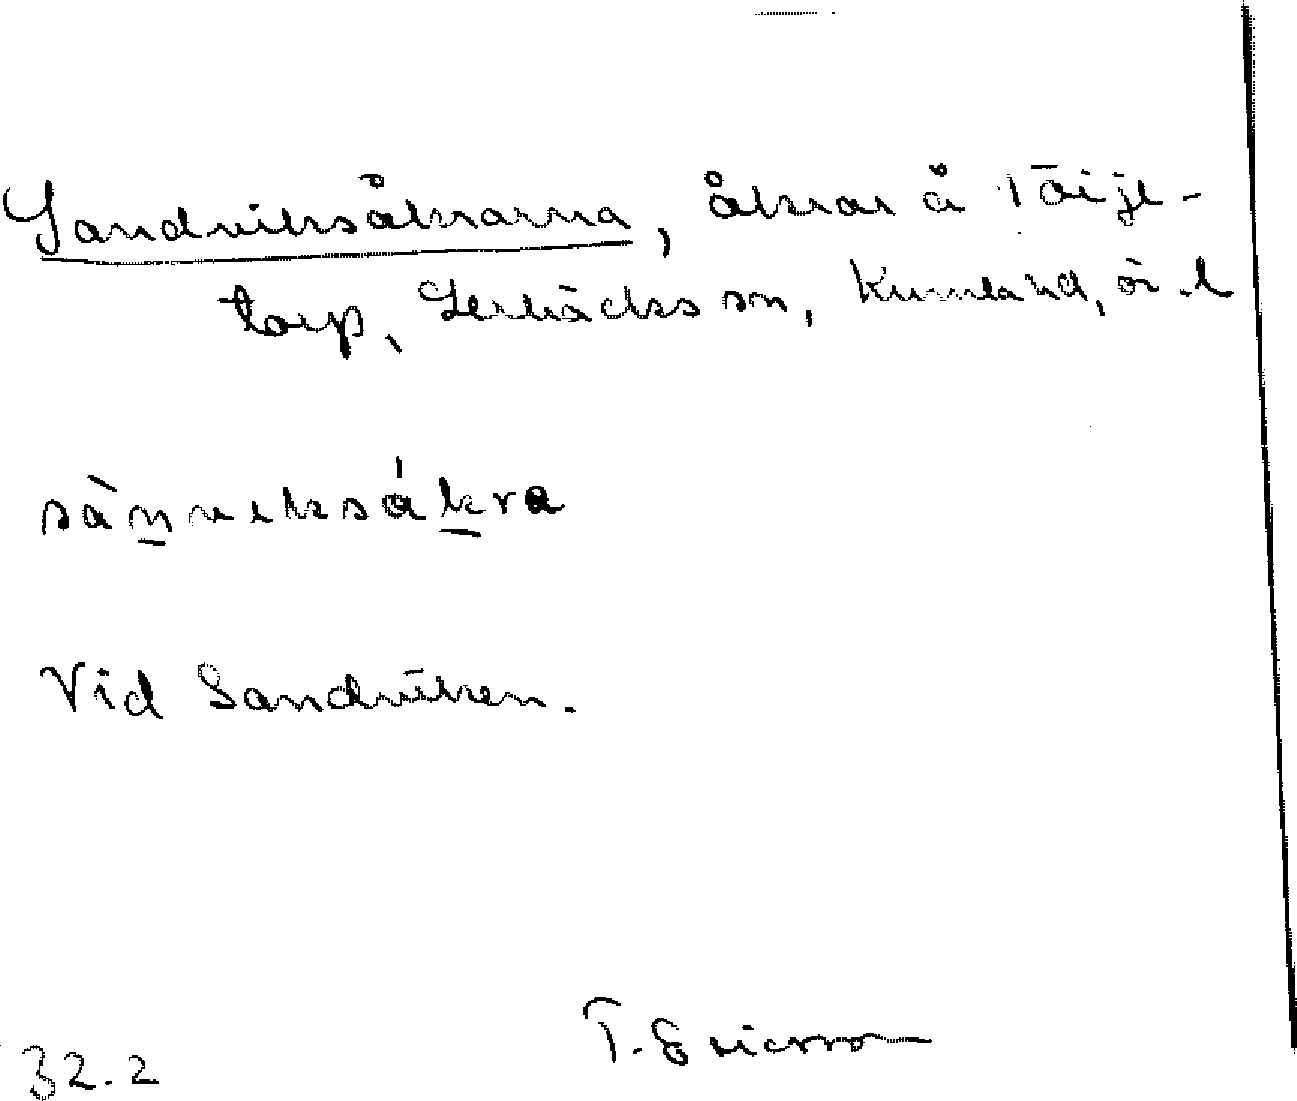 Sandviksåkrarna, åkrar å Täije-
torp, Lerbäcks sn, Kumla hd, ör. l
sànviksåkra
Vid Sandviken.
T. Ericsson
32.2